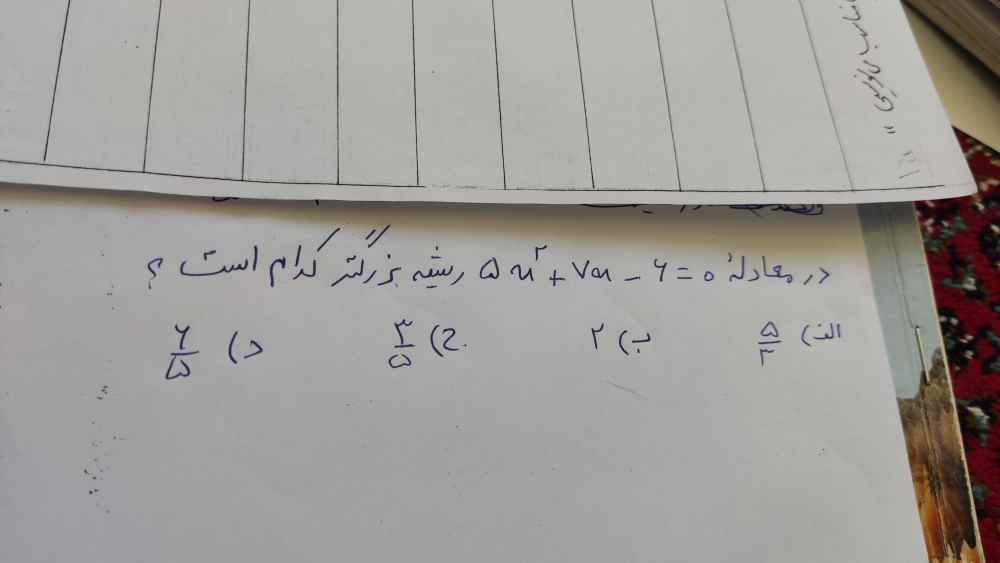 مناسب می‌نویسیم "
در معادلهٔ ۵x²+۷x−۶=۰ ریشه بزرگتر کدام است ؟
الف) ۵/۳ ب) ۲ ج) ۳/۵ د) ۶/۵